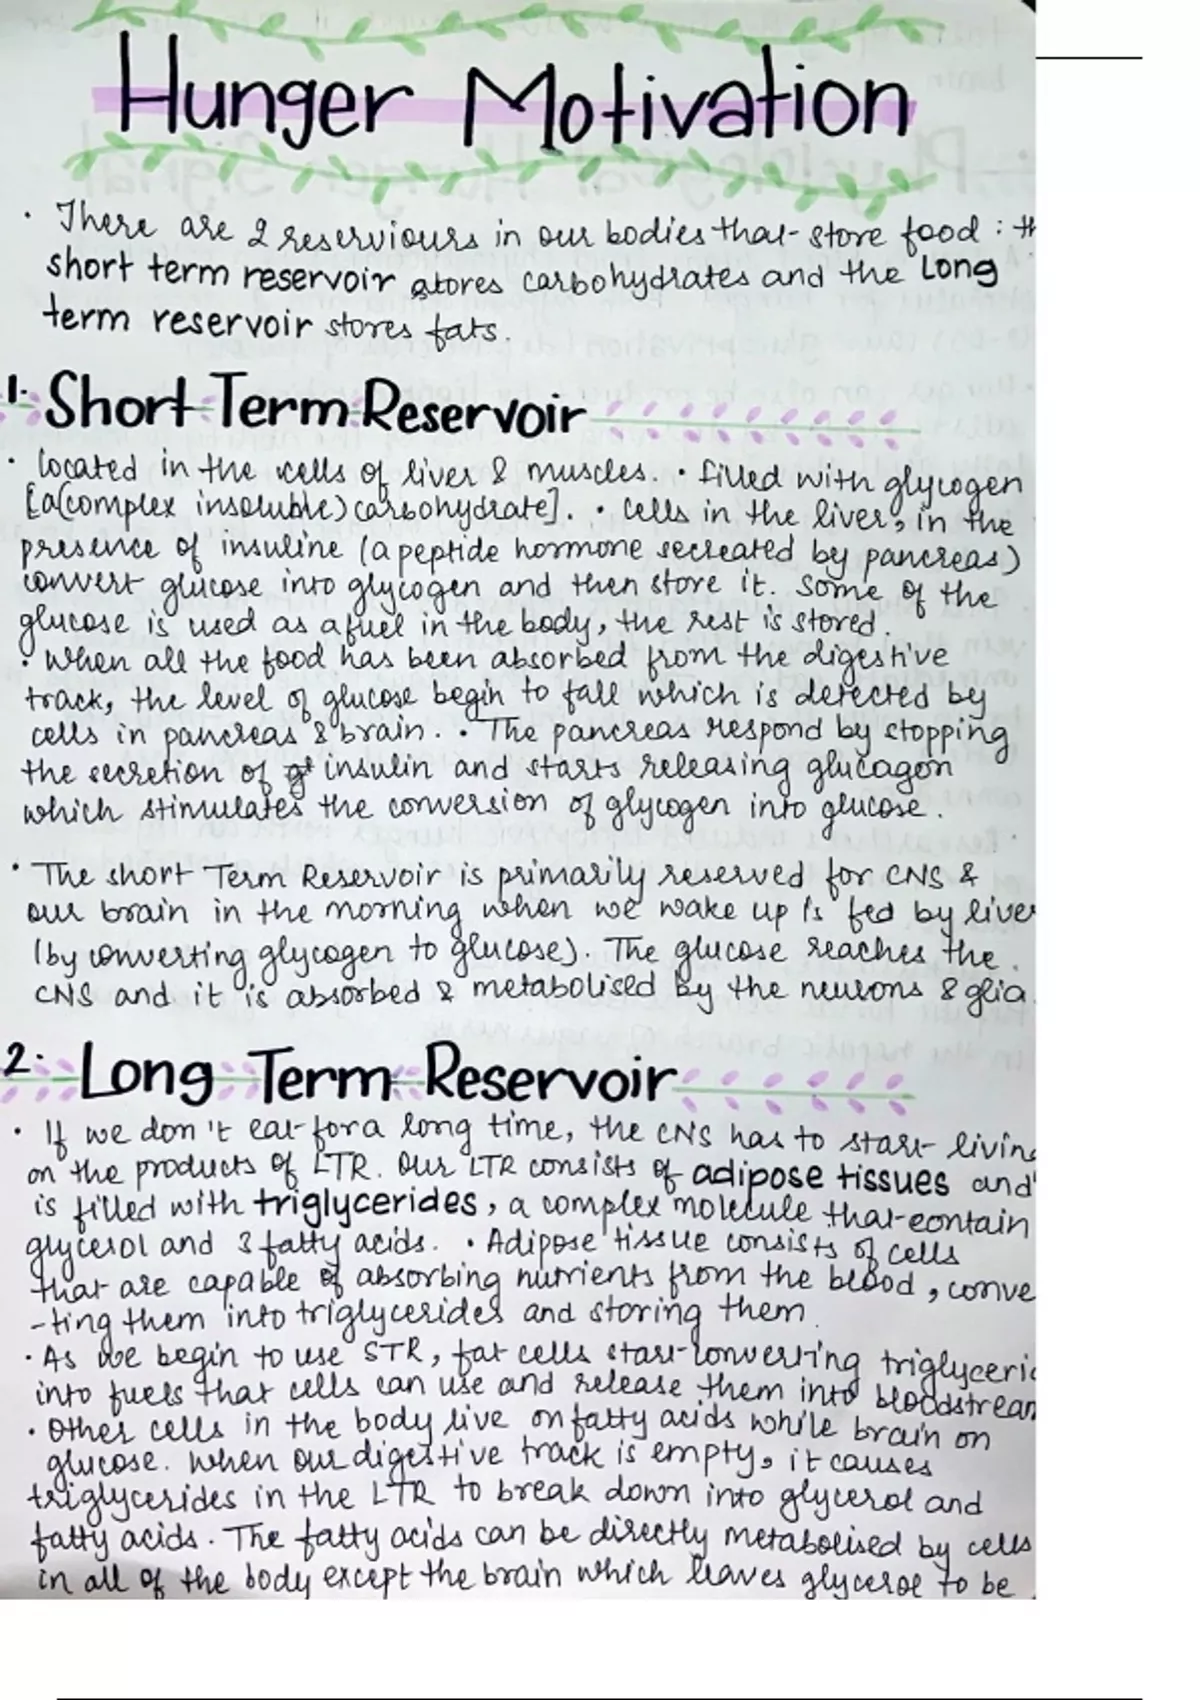 Hunger Motivation
· There are 2 reserviours in our bodies that store food : th
short term reservoir stores carbohydrates and the Long
term reservoir stores fats.
1. Short Term Reservoir
· located in the cells of liver & muscles. · filled with glycogen
[a(complex insoluble) carbohydrate]. · cells in the liver, in the
presence of insuline (a peptide hormone secreated by pancreas)
convert glucose into glycogen and then store it. Some of the
glucose is used as a fuel in the body, the rest is stored.
· When all the food has been absorbed from the digestive
track, the level of glucose begin to fall which is detected by
cells in pancreas & brain. · The pancreas respond by stopping
the secretion of insulin and starts releasing glucagon
which stimulates the conversion of glycogen into glucose.
· The short Term Reservoir is primarily reserved for CNS &
our brain in the morning when we wake up is fed by liver
(by converting glycogen to glucose). The glucose reaches the
CNS and it is absorbed & metabolised by the neurons & glia
2. Long Term Reservoir
· If we don't eat for a long time, the CNS has to start living
on the products of LTR. Our LTR consists of adipose tissues and
is filled with triglycerides, a complex molecule that contain
glycerol and 3 fatty acids. · Adipose tissue consists of cells
that are capable of absorbing nutrients from the blood, conve
-ting them into triglycerides and storing them.
· As we begin to use STR, fat cells start converting triglyceric
into fuels that cells can use and release them into bloodstream
· Other cells in the body live on fatty acids while brain on
glucose. When our digestive track is empty, it causes
triglycerides in the LTR to break down into glycerol and
fatty acids. The fatty acids can be directly metabolised by cells
in all of the body except the brain which leaves glycerol to be